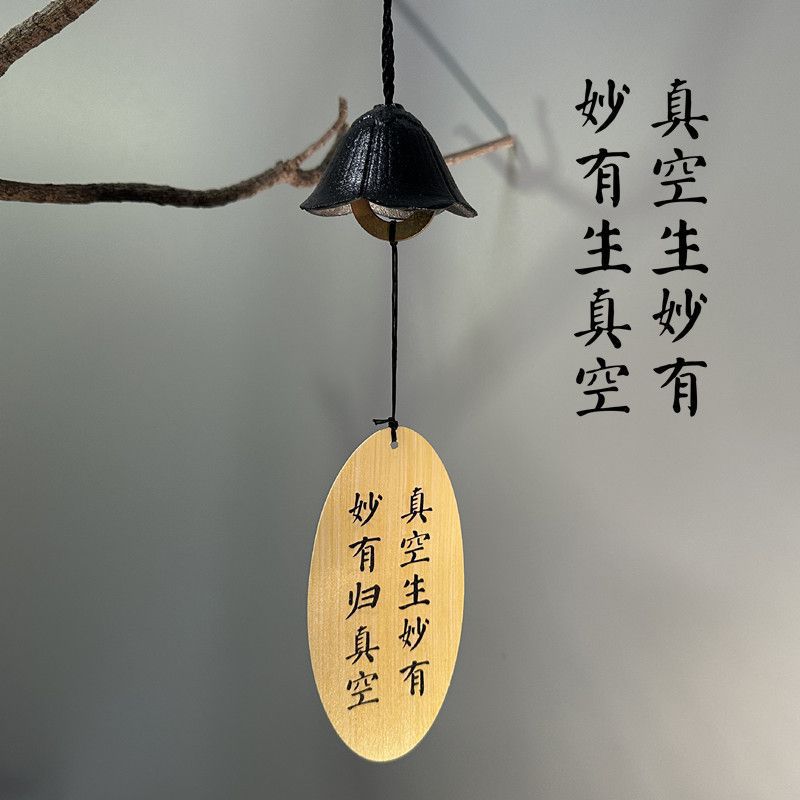 真空生妙有
妙有生真空
真空生妙有
妙有归真空